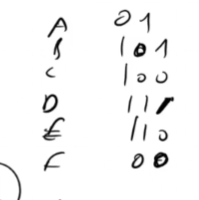 A 01
B 101
C 100
D 111
E 110
F 00